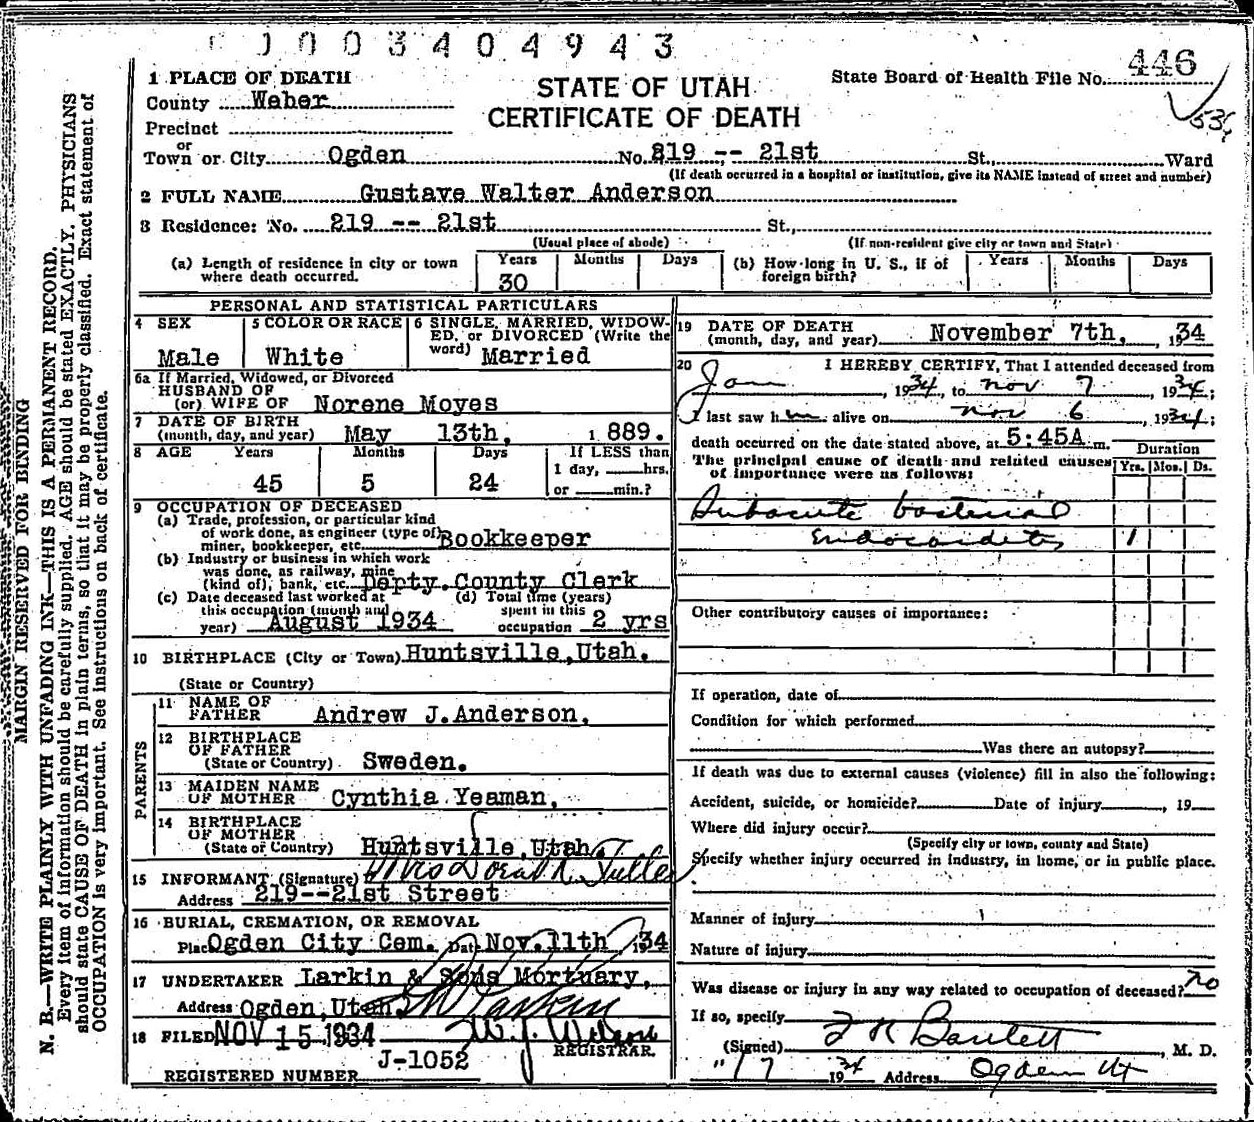 0003404943
1 PLACE OF DEATH
STATE OF UTAH
CERTIFICATE OF DEATH
State Board of Health File No. 446
County Weber
Precinct
or
Town or City Ogden No. 819 -- 21st St., Ward
(If death occurred in a hospital or institution, give its NAME instead of street and number)
2 FULL NAME Gustave Walter Anderson
3 Residence: No. 219 -- 21st St.,
(Usual place of abode) (If non-resident give city or town and State)
(a) Length of residence in city or town where death occurred. Years 30 Months Days
(b) How long in U. S., if of foreign birth? Years Months Days
PERSONAL AND STATISTICAL PARTICULARS
4 SEX Male
5 COLOR OR RACE White
6 SINGLE, MARRIED, WIDOWED, or DIVORCED (Write the word) Married
6a If Married, Widowed, or Divorced
HUSBAND OF
(or) WIFE OF Norene Moyes
7 DATE OF BIRTH
(month, day, and year) May 13th, 1889.
8 AGE Years 45 Months 5 Days 24 If LESS than 1 day, hrs. or min.?
9 OCCUPATION OF DECEASED
(a) Trade, profession, or particular kind
of work done, as engineer (type of)
miner, bookkeeper, etc. Bookkeeper
(b) Industry or business in which work
was done, as railway, mine
(kind of), bank, etc. Depty.County Clerk
(c) Date deceased last worked at this occupation (month and year) August 1934
(d) Total time (years) spent in this occupation 2 yrs
10 BIRTHPLACE (City or Town) Huntsville,Utah.
(State or Country)
PARENTS
11 NAME OF FATHER Andrew J.Anderson.
12 BIRTHPLACE OF FATHER
(State or Country) Sweden.
13 MAIDEN NAME OF MOTHER Cynthia Yeaman,
14 BIRTHPLACE OF MOTHER
(State or Country) Huntsville,Utah.
15 INFORMANT (Signature) Mrs
Address 219--21st Street
16 BURIAL, CREMATION, OR REMOVAL
Place Ogden City Cem. Date Nov.11th 1934
17 UNDERTAKER Larkin & Sons Mortuary,
Address Ogden,Utah.
18 FILED NOV 15 1934
REGISTRAR.
REGISTERED NUMBER J-1052
19 DATE OF DEATH
(month, day, and year) November 7th, 1934
20 I HEREBY CERTIFY, That I attended deceased from
Jan 1934, to Nov 7 1934;
I last saw him alive on Nov 6, 1934;
death occurred on the date stated above, at 5:45A m.
Duration
Yrs. Mos. Ds.
The principal cause of death and related causes
of importance were as follows:
Subacute bacterial
Endocarditis 1
Other contributory causes of importance:
If operation, date of
Condition for which performed
Was there an autopsy?
If death was due to external causes (violence) fill in also the following:
Accident, suicide, or homicide? Date of injury , 19
Where did injury occur?
(Specify city or town, county and State)
Specify whether injury occurred in industry, in home, or in public place.
Manner of injury
Nature of injury
Was disease or injury in any way related to occupation of deceased? no
If so, specify
(Signed) Bartlett, M. D.
" 17 1934 Address Ogden Ut
MARGIN RESERVED FOR BINDING
N. B.—WRITE PLAINLY WITH UNFADING INK—THIS IS A PERMANENT RECORD.
Every item of information should be carefully supplied. AGE should be stated EXACTLY. PHYSICIANS
should state CAUSE OF DEATH in plain terms, so that it may be properly classified. Exact statement of
OCCUPATION is very important. See instructions on back of certificate.